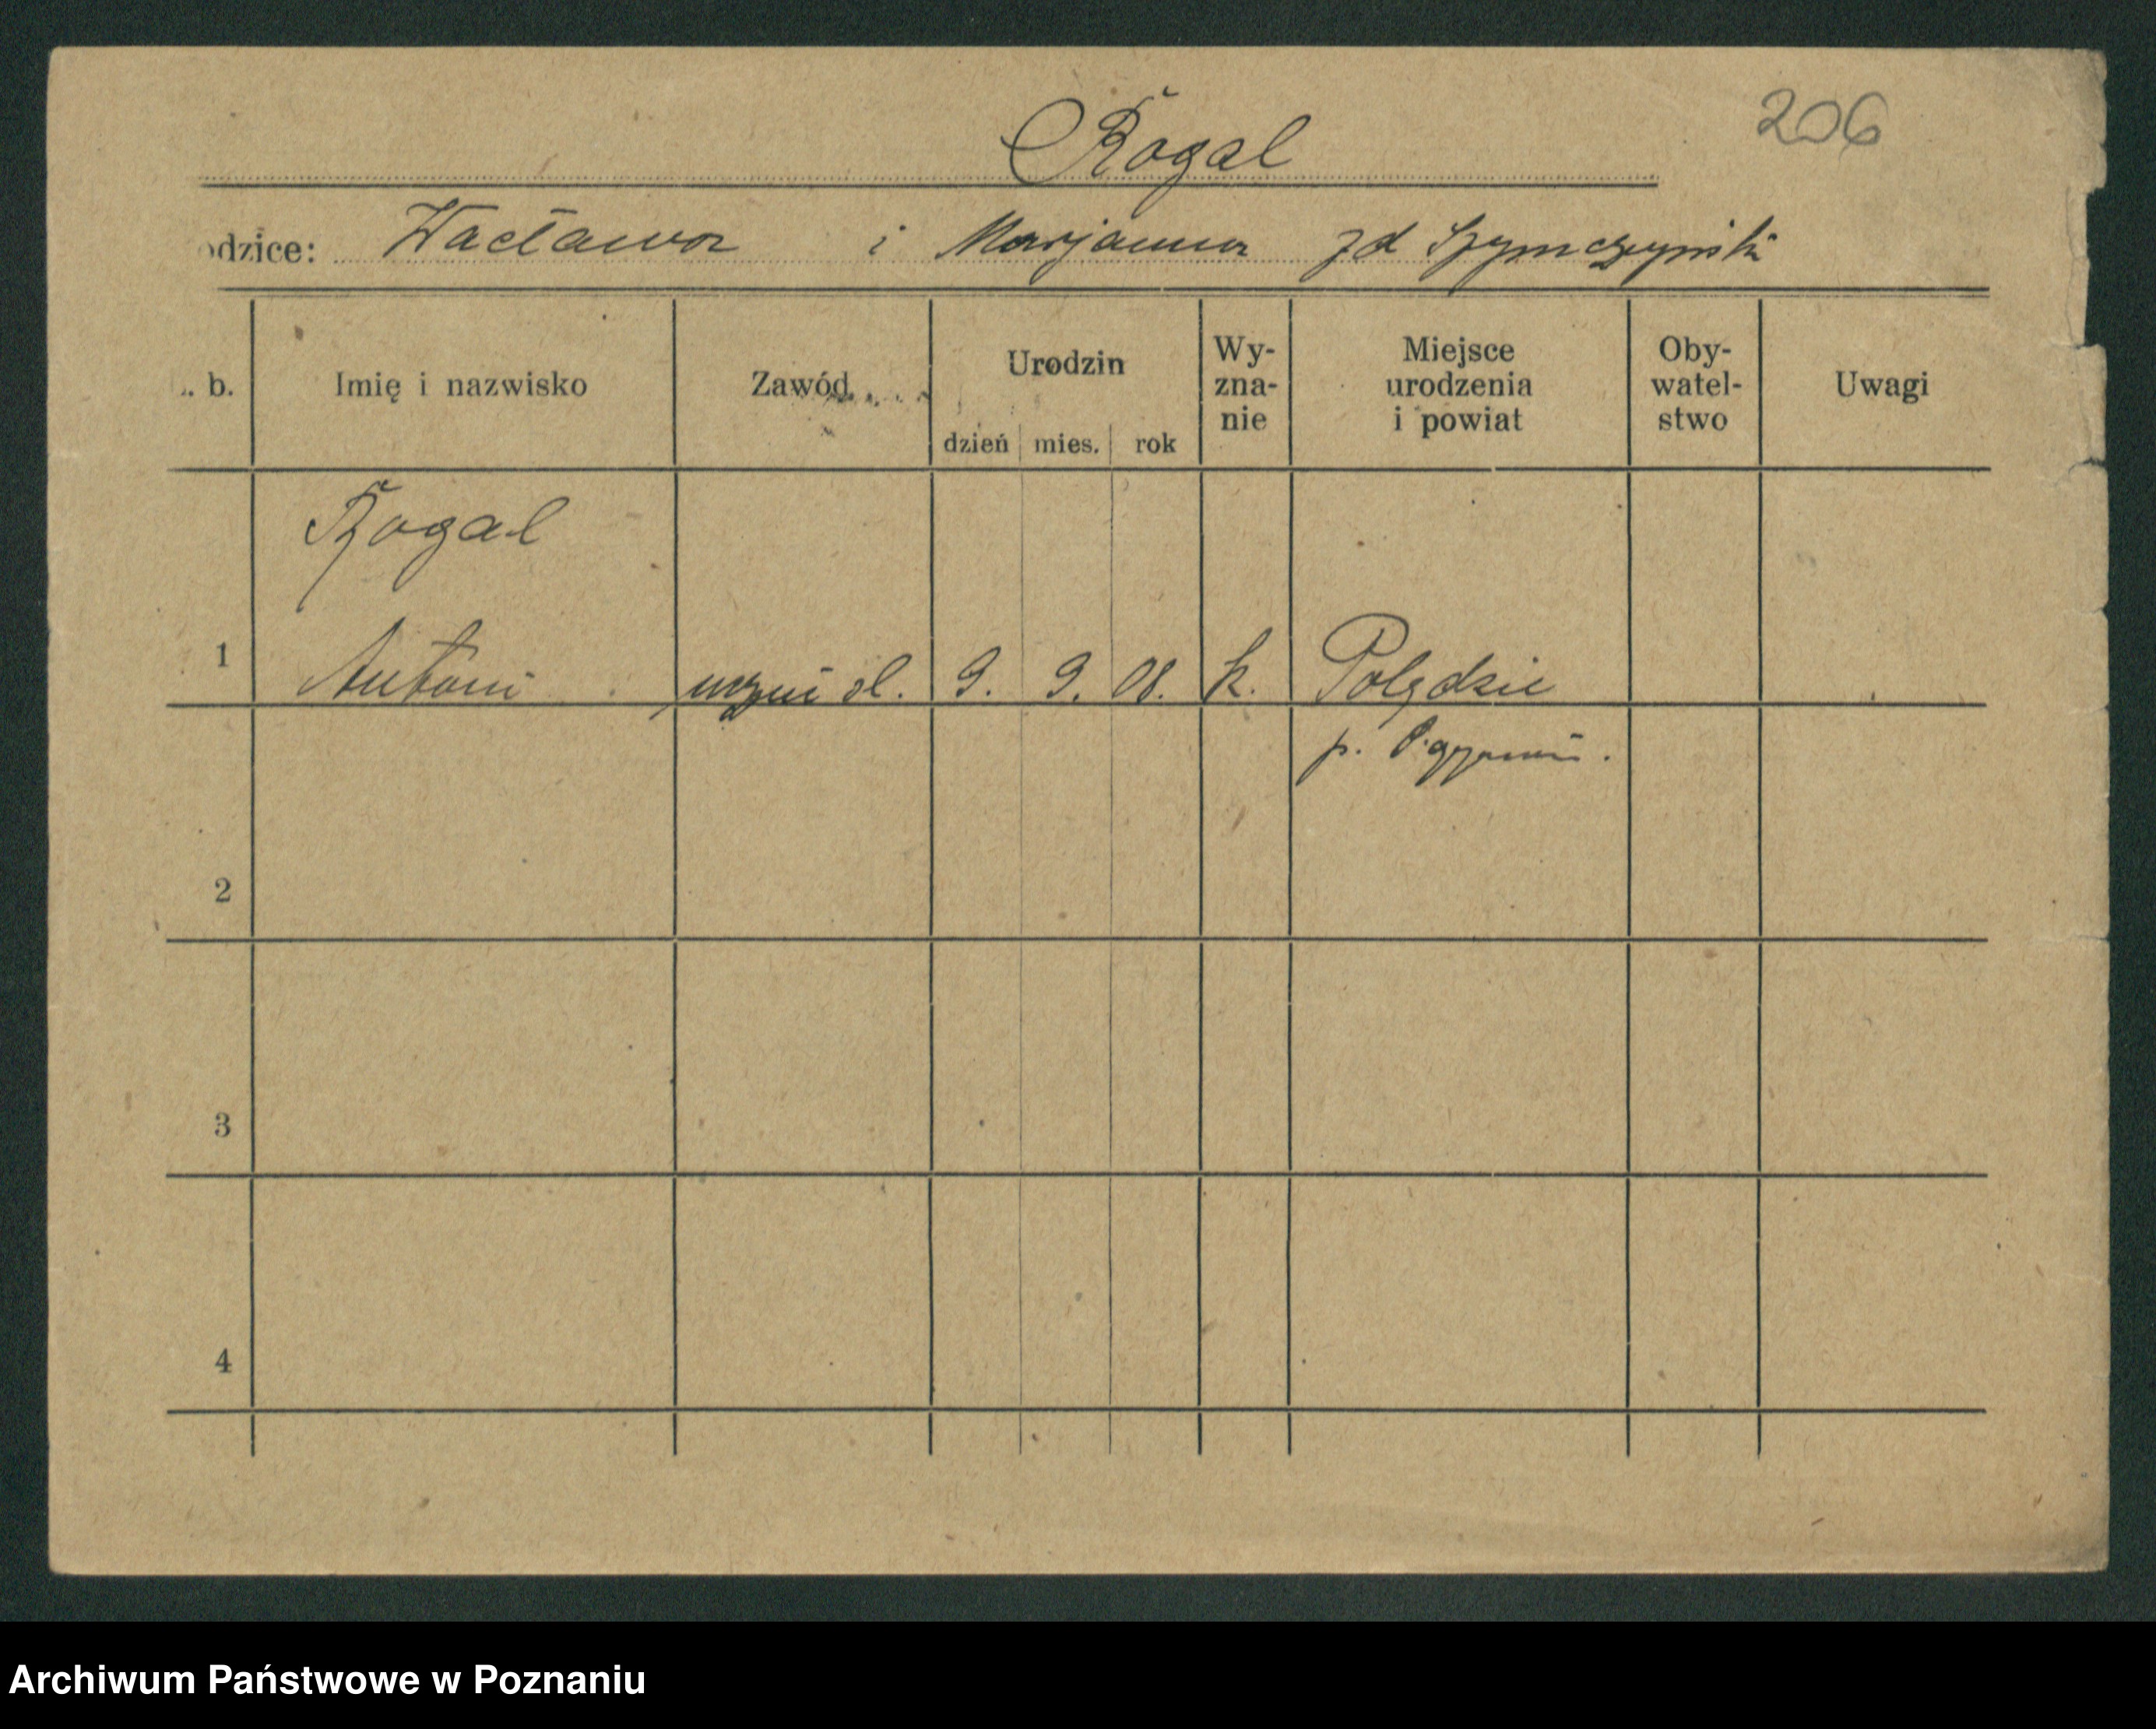 206
Rogal
odzice: Wacława i Marjanna zd Szymczyński
. b.
Imię i nazwisko
Zawód
Urodzin
dzień mies. rok
Wy-
zna-
nie
Miejsce
urodzenia
i powiat
Oby-
watel-
stwo
Uwagi
Rogal
1 Antoni uczeń 9. 9. 08. k. Polędzie
p.
2
3
4
Archiwum Państwowe w Poznaniu